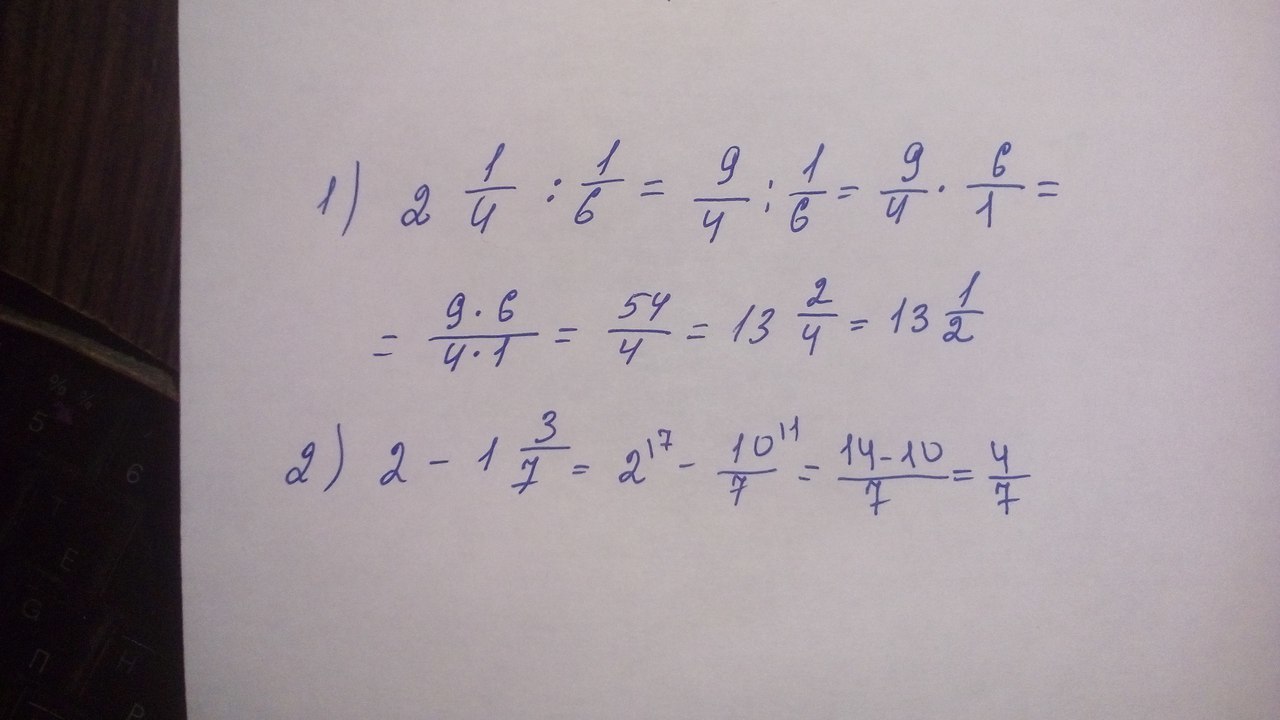 1) 2 1/4 : 1/6 = 9/4 : 1/6 = 9/4 · 6/1 =
= 9·6/4·1 = 54/4 = 13 2/4 = 13 1/2
2) 2 - 1 3/7 = 2^{17} - 10^{11}/7 = 14-10/7 = 4/7
%
5
6
Т
Е
G
П
Н
Р